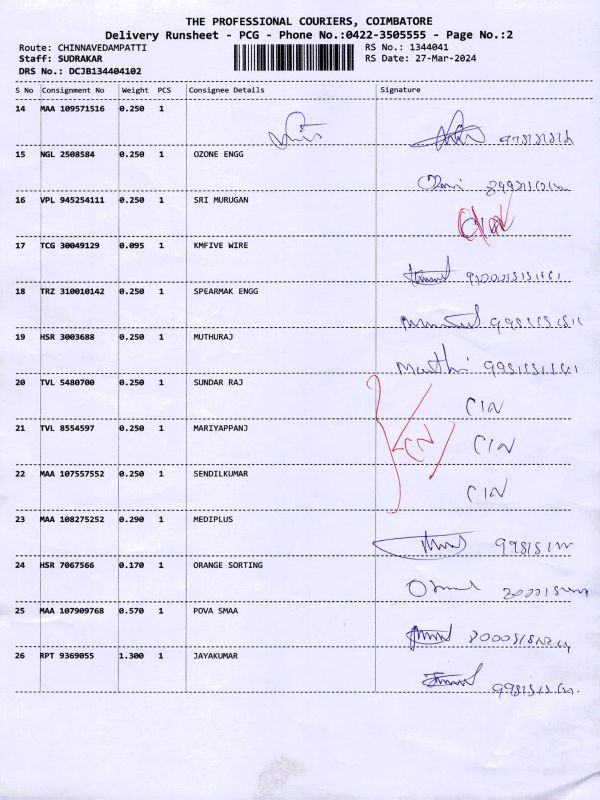 THE PROFESSIONAL COURIERS, COIMBATORE
Delivery Runsheet - PCG - Phone No.:0422-3505555 - Page No.:2
Route: CHINNAVEDAMPATTI RS No.: 1344041
Staff: SUDRAKAR RS Date: 27-Mar-2024
DRS No.: DCJB134404102
S No Consignment No Weight PCS Consignee Details Signature
14 MAA 109571516 0.250 1
15 NGL 2508584 0.250 1 OZONE ENGG
16 VPL 945254111 0.250 1 SRI MURUGAN CIN
17 TCG 30049129 0.095 1 KMFIVE WIRE
18 TRZ 310010142 0.250 1 SPEARMAK ENGG
19 HSR 3003688 0.250 1 MUTHURAJ
20 TVL 5480700 0.250 1 SUNDAR RAJ CIN
21 TVL 8554597 0.250 1 MARIYAPPANJ CIN
22 MAA 107557552 0.250 1 SENDILKUMAR CIN
23 MAA 108275252 0.290 1 MEDIPLUS
24 HSR 7067566 0.170 1 ORANGE SORTING
25 MAA 107909768 0.570 1 POVA SMAA
26 RPT 9369055 1.300 1 JAYAKUMAR